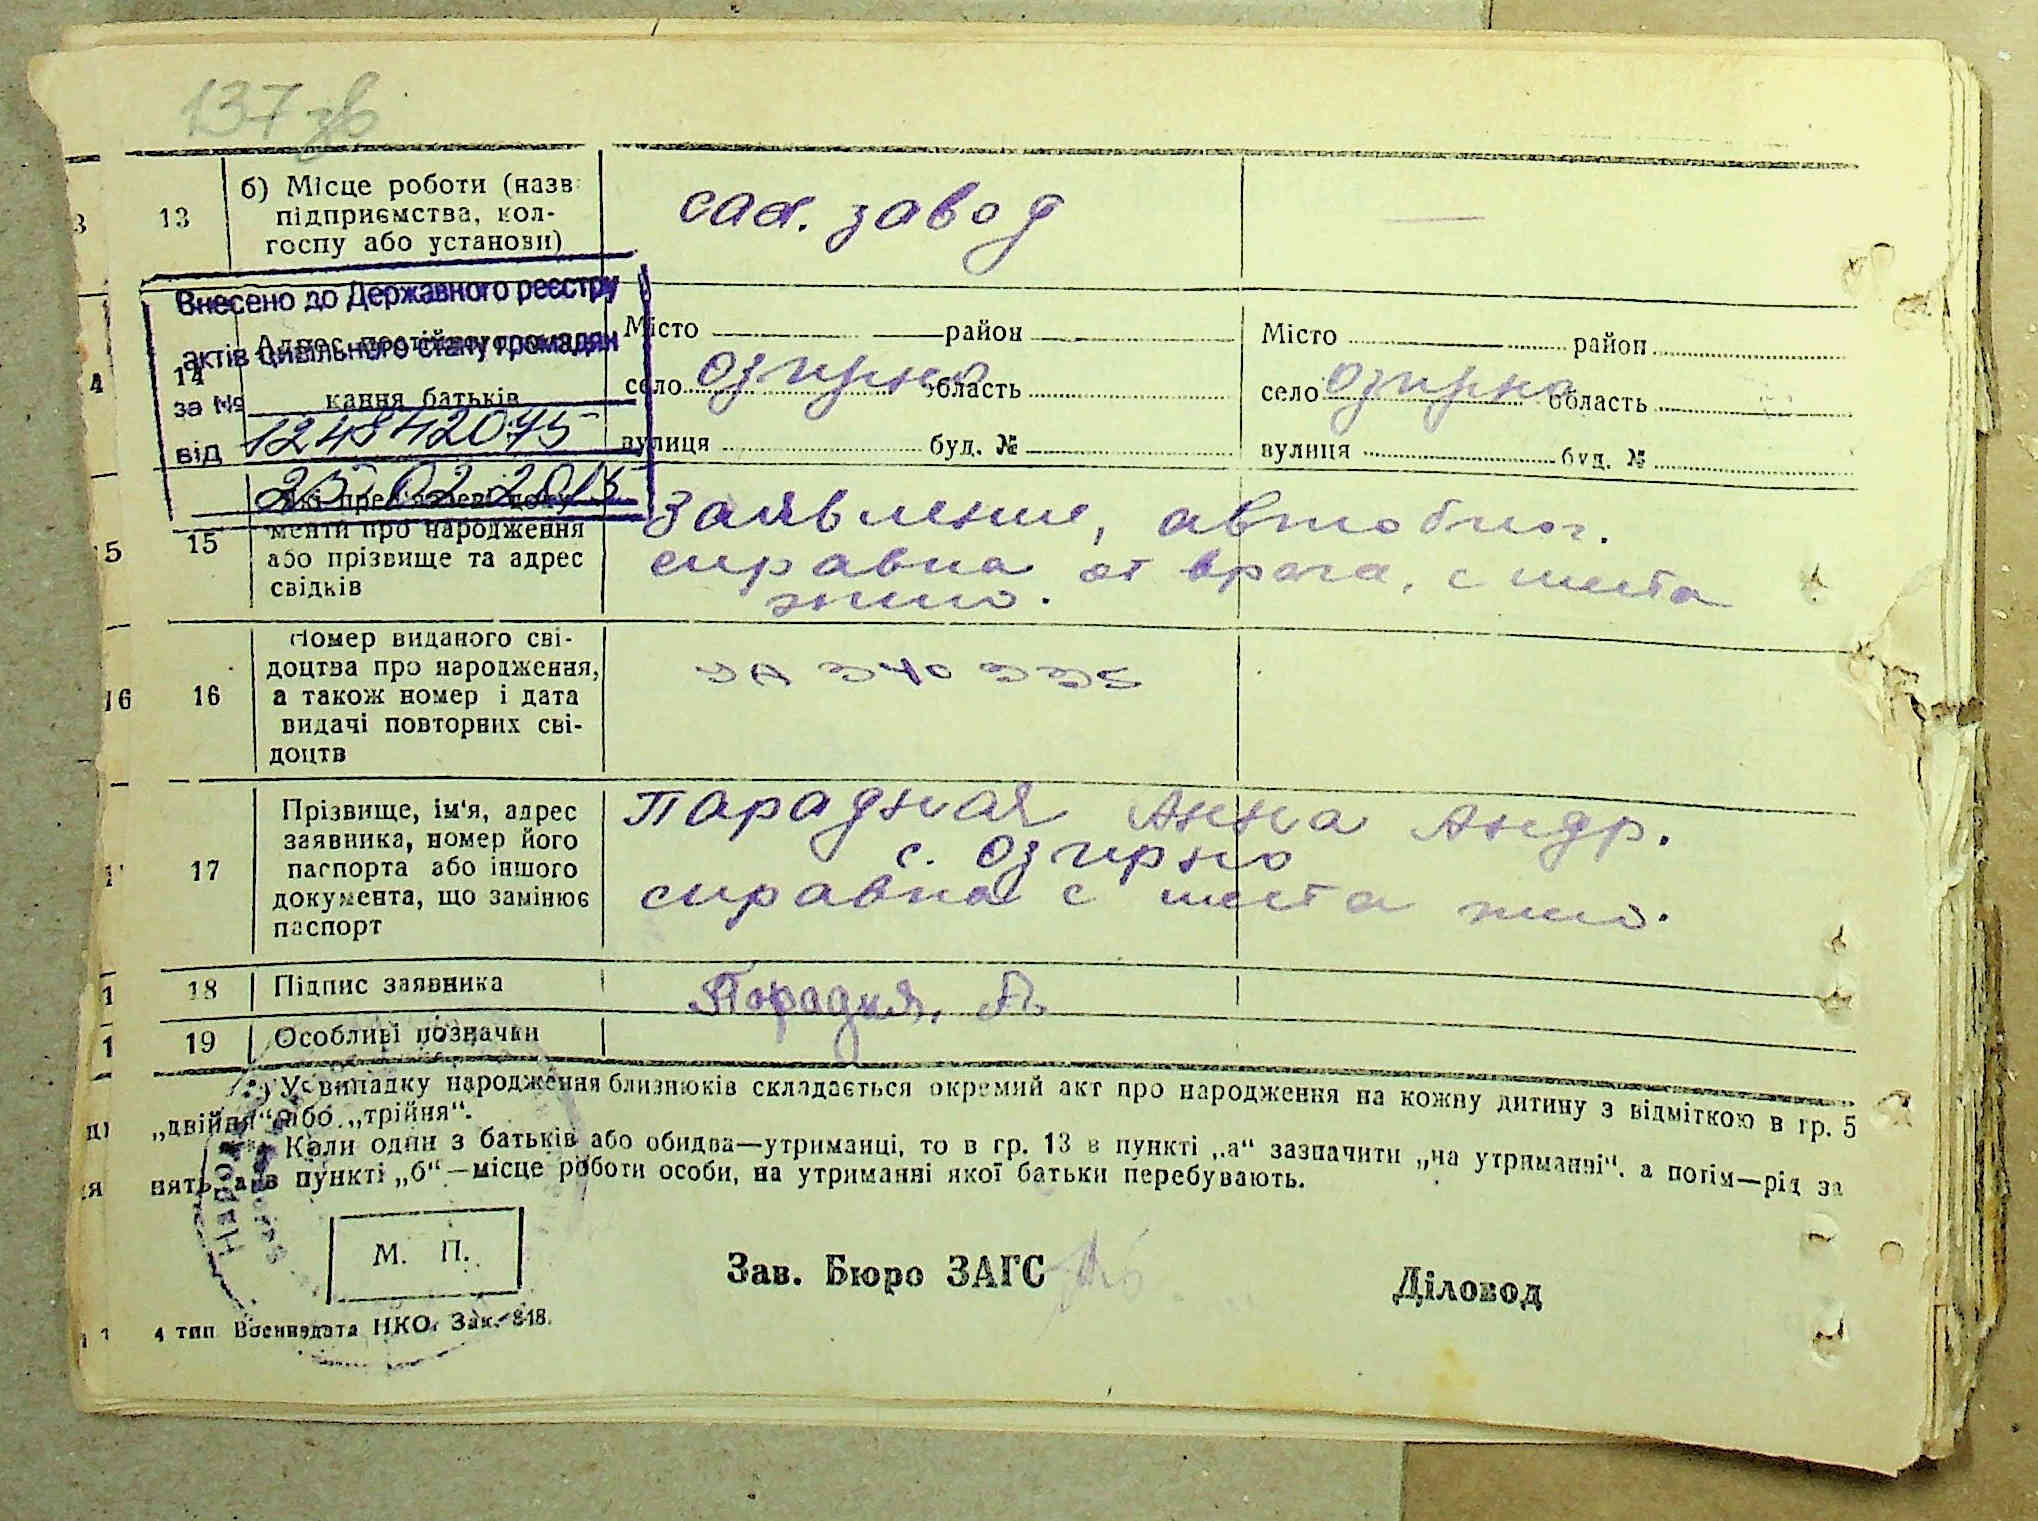 137 зв
13
б) Місце роботи (назв
підприємства, кол-
госпу або установи)
сах. завод
Внесено до Державного реєстру
актів цивільного стану громадян
за №
від
25 02 2015
14
кання батьків
Місто район
село Озирно область
вулиця буд. №
Місто район
село Озирна область
вулиця буд. №
15
менти про народження
або прізвище та адрес
свідків
Заявление, автобиог.
справка от врача, с места
жит.
16
Номер виданого сві-
доцтва про народження,
а також номер і дата
видачі повторних сві-
доцтв
17
Прізвище, ім'я, адрес
заявника, номер його
паспорта або іншого
документа, що замінює
паспорт
Парадная Анна Андр.
с. Озирно
справка с места жит.
18
Підпис заявника
19
Особливі позначки
*) У випадку народження близнюків складається окремий акт про народження на кожну дитину з відміткою в гр. 5
„двійня“ або „трійня“.
Коли один з батьків або обидва—утриманці, то в гр. 13 в пункті „а“ зазначити „на утриманні“, а потім—рід за
нять, а в пункті „б“—місце роботи особи, на утриманні якої батьки перебувають.
М. П.
Зав. Бюро ЗАГС
Діловод
4 тип Воениздата НКО. Зак. 818.